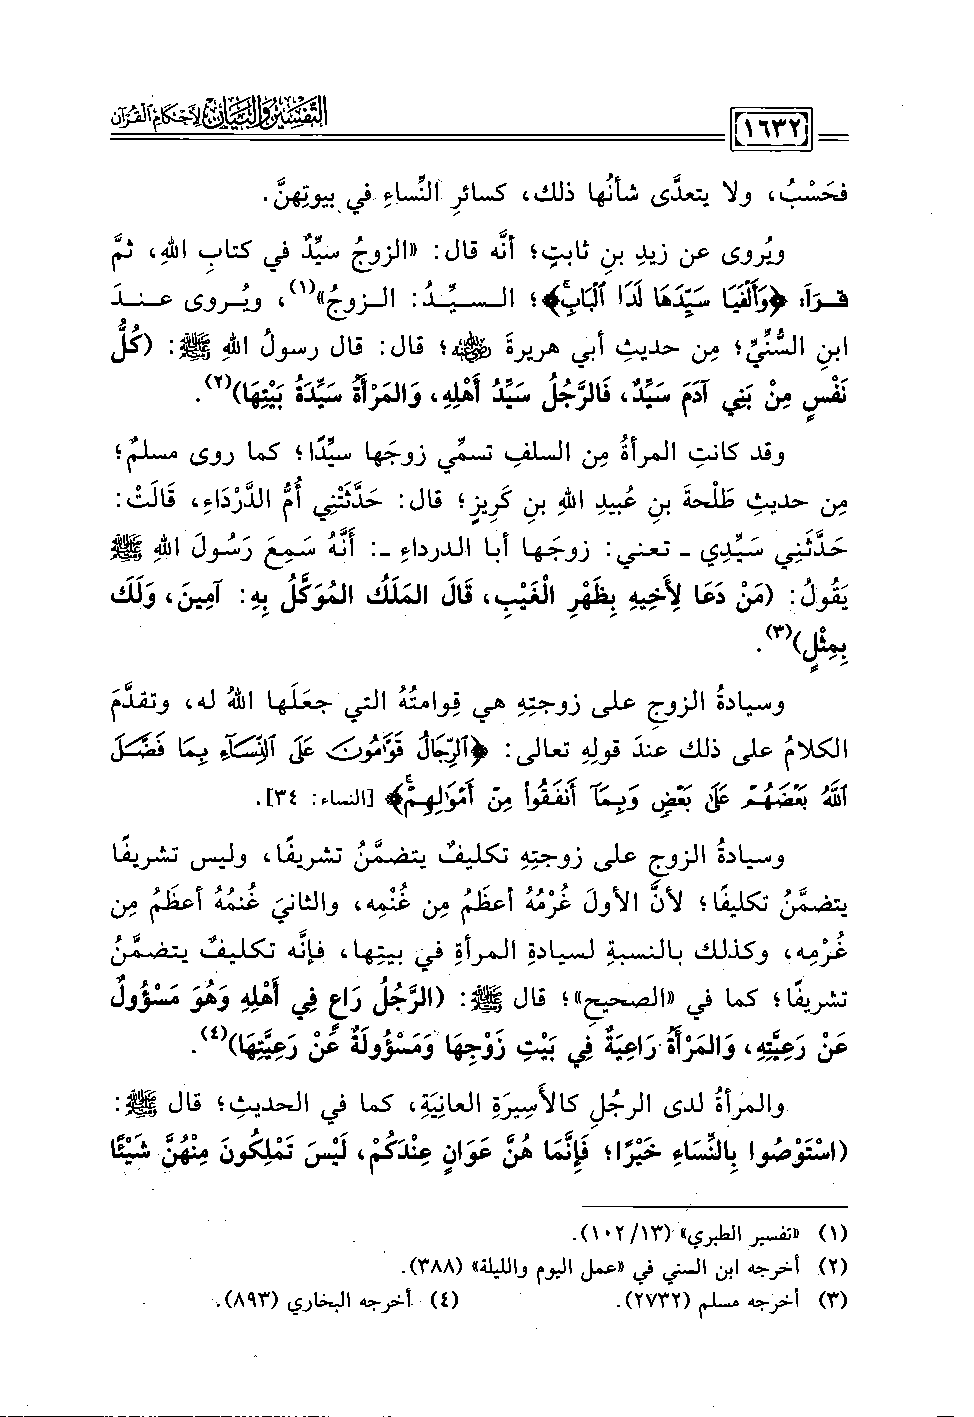 التفسير والبيان لأحكام القرآن
١٦٣٢
فحَسْبُ، ولا يتعدَّى شأنُها ذلك، كسائرِ النِّساءِ في بيوتِهنَّ.
ويُروى عن زيدِ بنِ ثابتٍ؛ أنَّه قال: «الزوجُ سيِّدٌ في كتابِ اللهِ، ثمَّ
قرَأ: ﴿وَأَلْفَيَا سَيِّدَهَا لَدَا ٱلْبَابِ﴾؛ السيِّدُ: الزوجُ»(١)، ويُروى عندَ
ابنِ السُّنِّيِّ؛ مِن حديثِ أبي هريرةَ رضي الله عنه؛ قال: قال رسولُ اللهِ ﷺ: (كُلُّ
نَفْسٍ مِنْ بَنِي آدَمَ سَيِّدٌ، فَالرَّجُلُ سَيِّدُ أَهْلِهِ، وَالمَرْأَةُ سَيِّدَةُ بَيْتِهَا)(٢).
وقد كانتِ المرأةُ مِن السلفِ تسمِّي زوجَها سيِّدًا؛ كما روى مسلمٌ؛
مِن حديثِ طَلْحةَ بنِ عُبيدِ اللهِ بنِ كَرِيزٍ؛ قال: حَدَّثَتْنِي أُمُّ الدَّرْدَاءِ، قَالَتْ:
حَدَّثَنِي سَيِّدِي ـ تعني: زوجَها أبا الدرداءِ ـ: أَنَّهُ سَمِعَ رَسُولَ اللهِ ﷺ
يَقُولُ: (مَنْ دَعَا لِأَخِيهِ بِظَهْرِ الْغَيْبِ، قَالَ المَلَكُ المُوَكَّلُ بِهِ: آمِينَ، وَلَكَ
بِمِثْلٍ)(٣).
وسيادةُ الزوجِ على زوجتِهِ هي قِوامتُهُ التي جعَلَها اللهُ له، وتقدَّمَ
الكلامُ على ذلك عندَ قولِهِ تعالى: ﴿ٱلرِّجَالُ قَوَّٰمُونَ عَلَى ٱلنِّسَآءِ بِمَا فَضَّلَ
ٱللَّهُ بَعْضَهُمْ عَلَىٰ بَعْضٍ وَبِمَآ أَنفَقُوا۟ مِنْ أَمْوَٰلِهِمْ﴾ [النساء: ٣٤].
وسيادةُ الزوجِ على زوجتِهِ تكليفٌ يتضمَّنُ تشريفًا، وليس تشريفًا
يتضمَّنُ تكليفًا؛ لأنَّ الأولَ غُرْمُهُ أعظَمُ مِن غُنْمِه، والثانيَ غنمُهُ أعظَمُ مِن
غُرْمِه، وكذلك بالنسبةِ لسيادةِ المرأةِ في بيتِها، فإنَّه تكليفٌ يتضمَّنُ
تشريفًا؛ كما في «الصحيحِ»؛ قال ﷺ: (الرَّجُلُ رَاعٍ فِي أَهْلِهِ وَهُوَ مَسْؤُولٌ
عَنْ رَعِيَّتِهِ، وَالمَرْأَةُ رَاعِيَةٌ فِي بَيْتِ زَوْجِهَا وَمَسْؤُولَةٌ عَنْ رَعِيَّتِهَا)(٤).
والمرأةُ لدى الرجُلِ كالأسِيرَةِ العانِيَةِ، كما في الحديثِ؛ قال ﷺ:
(اسْتَوْصُوا بِالنِّسَاءِ خَيْرًا؛ فَإِنَّمَا هُنَّ عَوَانٍ عِنْدَكُمْ، لَيْسَ تَمْلِكُونَ مِنْهُنَّ شَيْئًا
(١) «تفسير الطبري» (١٣/ ١٠٢).
(٢) أخرجه ابن السني في «عمل اليوم والليلة» (٣٨٨).
(٣) أخرجه مسلم (٢٧٣٢). (٤) أخرجه البخاري (٨٩٣).